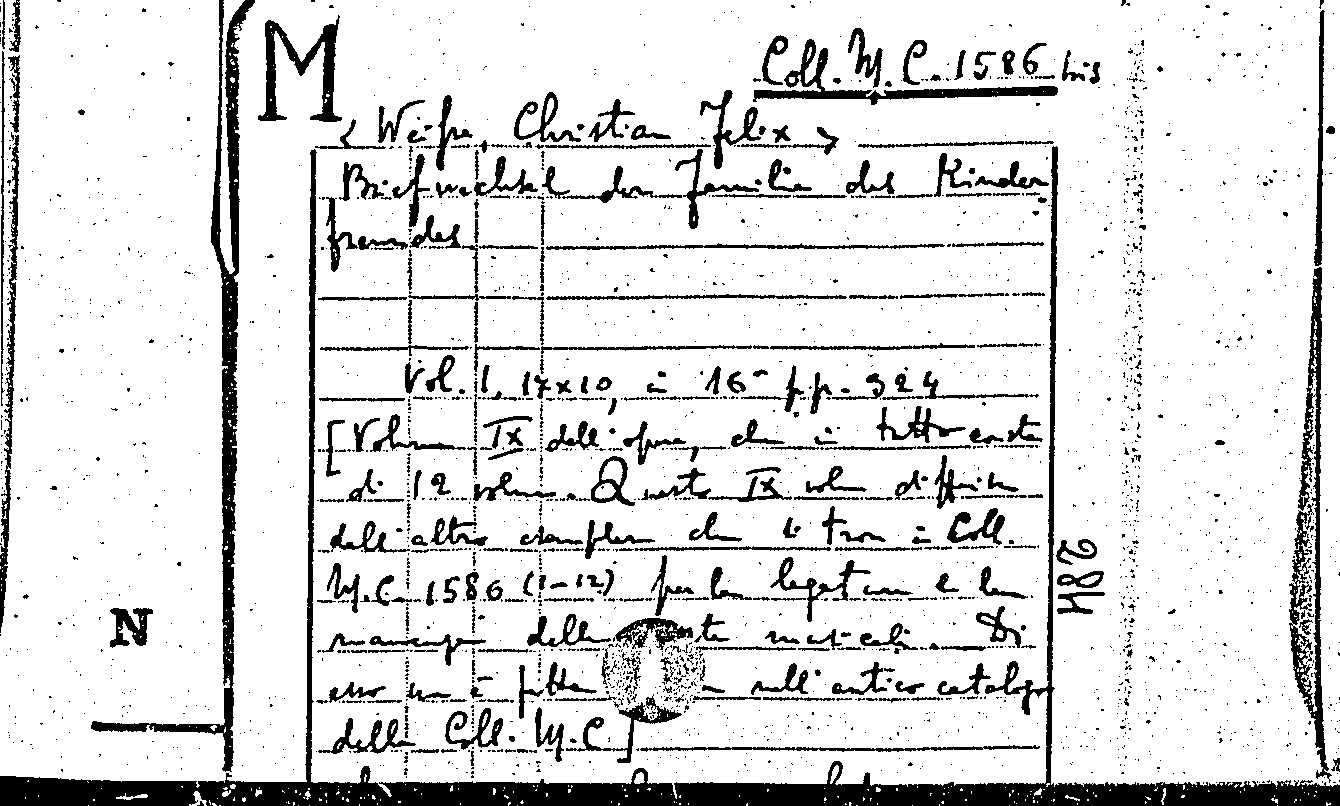 M
Coll. M. C. 1586 bis
< Weiße, Christian Felix >
Briefwechsel der Familie des Kinder
freundes
Vol. 1, 17x10, in 16° pp. 324
[Volume IX dell'opera, che in tutto consta
di 12 volumi. Questo IX volume differisce
dall'altro esemplare che si trova in Coll.
M.C. 1586 (1-12) per la legatura e la
mancanza delle musicali. Di
esso non è fatta sull'antico catalogo
della Coll. M.C.]
N
284